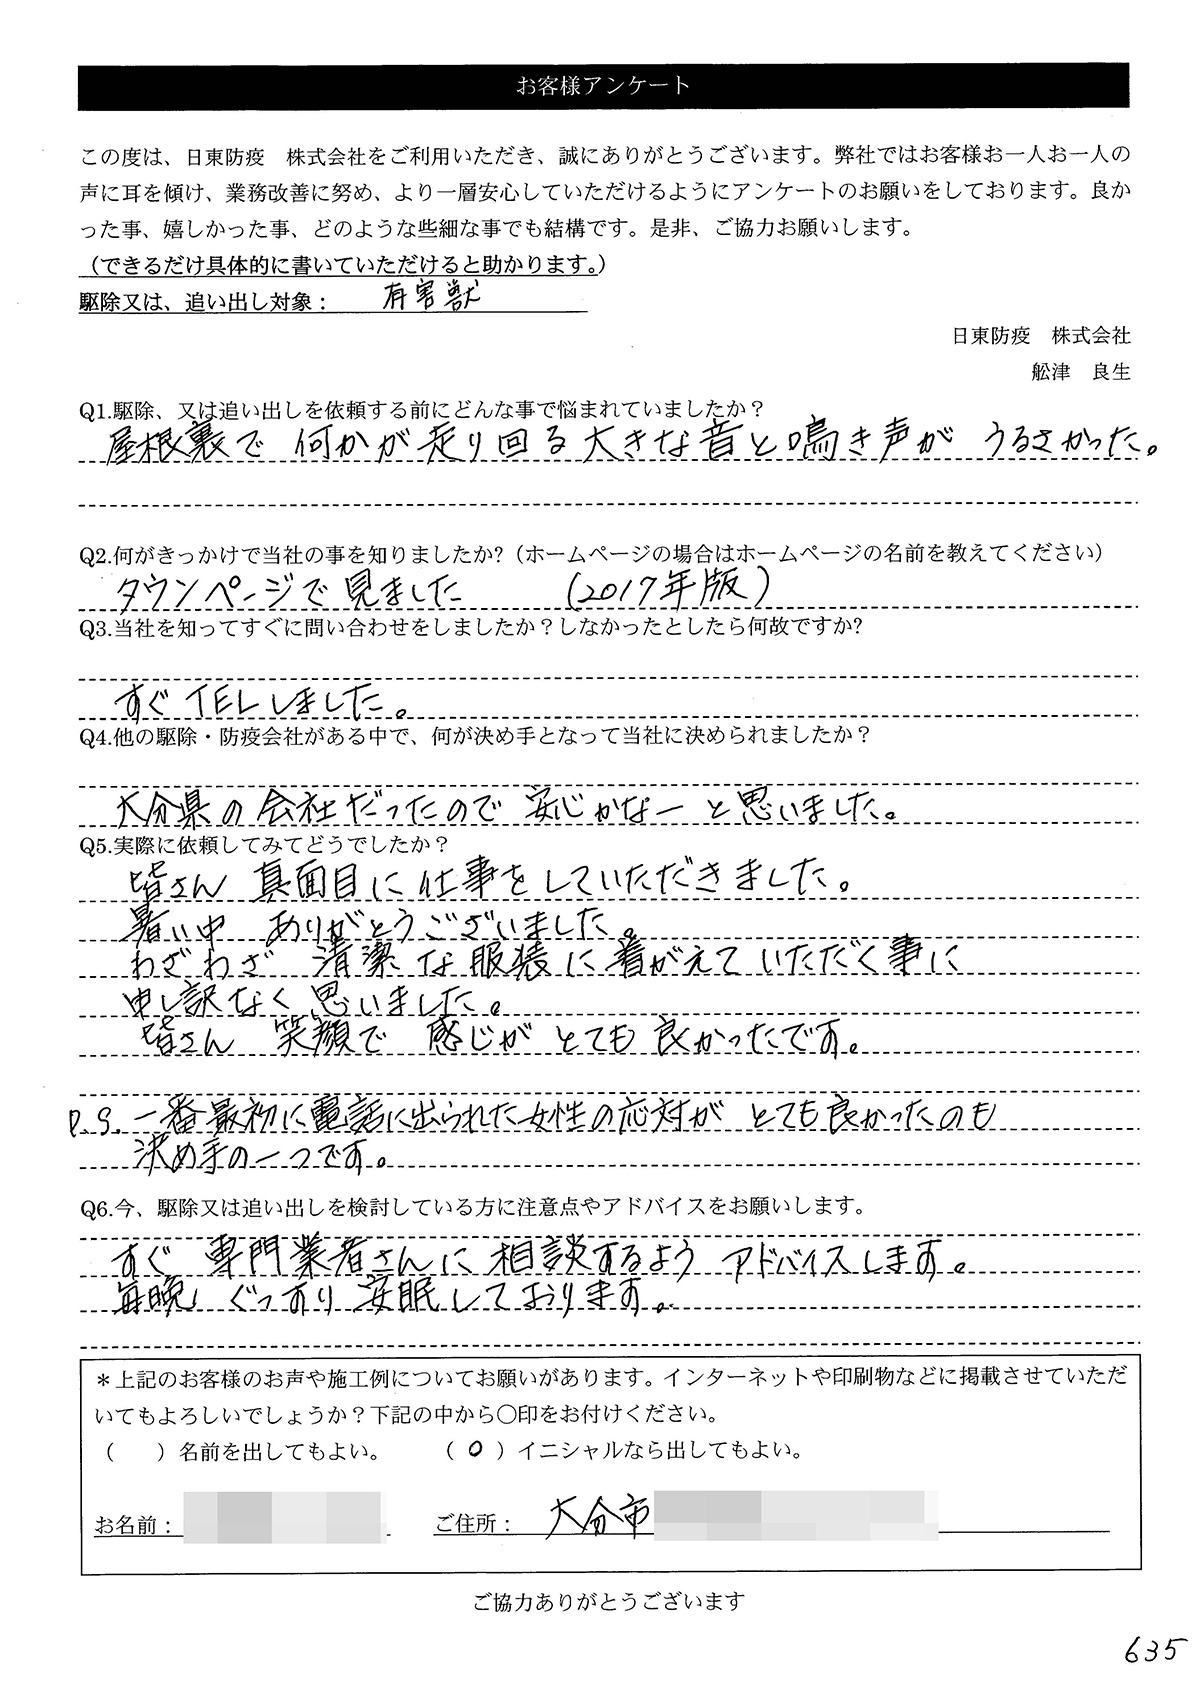 お客様アンケート
この度は、日東防疫　株式会社をご利用いただき、誠にありがとうございます。弊社ではお客様お一人お一人の
声に耳を傾け、業務改善に努め、より一層安心していただけるようにアンケートのお願いをしております。良か
った事、嬉しかった事、どのような些細な事でも結構です。是非、ご協力お願いします。
（できるだけ具体的に書いていただけると助かります。）
駆除又は、追い出し対象： 有害獣
日東防疫　株式会社
舩津　良生
Q1.駆除、又は追い出しを依頼する前にどんな事で悩まれていましたか？
屋根裏で 何かが走り回る大きな音と鳴き声が うるさかった。
Q2.何がきっかけで当社の事を知りましたか?（ホームページの場合はホームページの名前を教えてください）
タウンページで見ました （2017年版）
Q3.当社を知ってすぐに問い合わせをしましたか？しなかったとしたら何故ですか?
すぐTELしました。
Q4.他の駆除・防疫会社がある中で、何が決め手となって当社に決められましたか？
大分県の会社だったので 安心かなーと思いました。
Q5.実際に依頼してみてどうでしたか？
皆さん 真面目に仕事をしていただきました。
暑い中 ありがとうございました。
わざわざ 清潔な服装に着がえていただく事に
申し訳なく思いました。
皆さん 笑顔で 感じがとても良かったです。
P.S. 一番最初に電話に出られた女性の応対が とても良かったのも
決め手の一つです。
Q6.今、駆除又は追い出しを検討している方に注意点やアドバイスをお願いします。
すぐ 専門業者さんに相談するよう アドバイスします。
毎晩、ぐっすり安眠しております。
＊上記のお客様のお声や施工例についてお願いがあります。インターネットや印刷物などに掲載させていただ
いてもよろしいでしょうか？下記の中から〇印をお付けください。
（　　）名前を出してもよい。　（ O ）イニシャルなら出してもよい。
お名前：　ご住所： 大分市
ご協力ありがとうございます
635